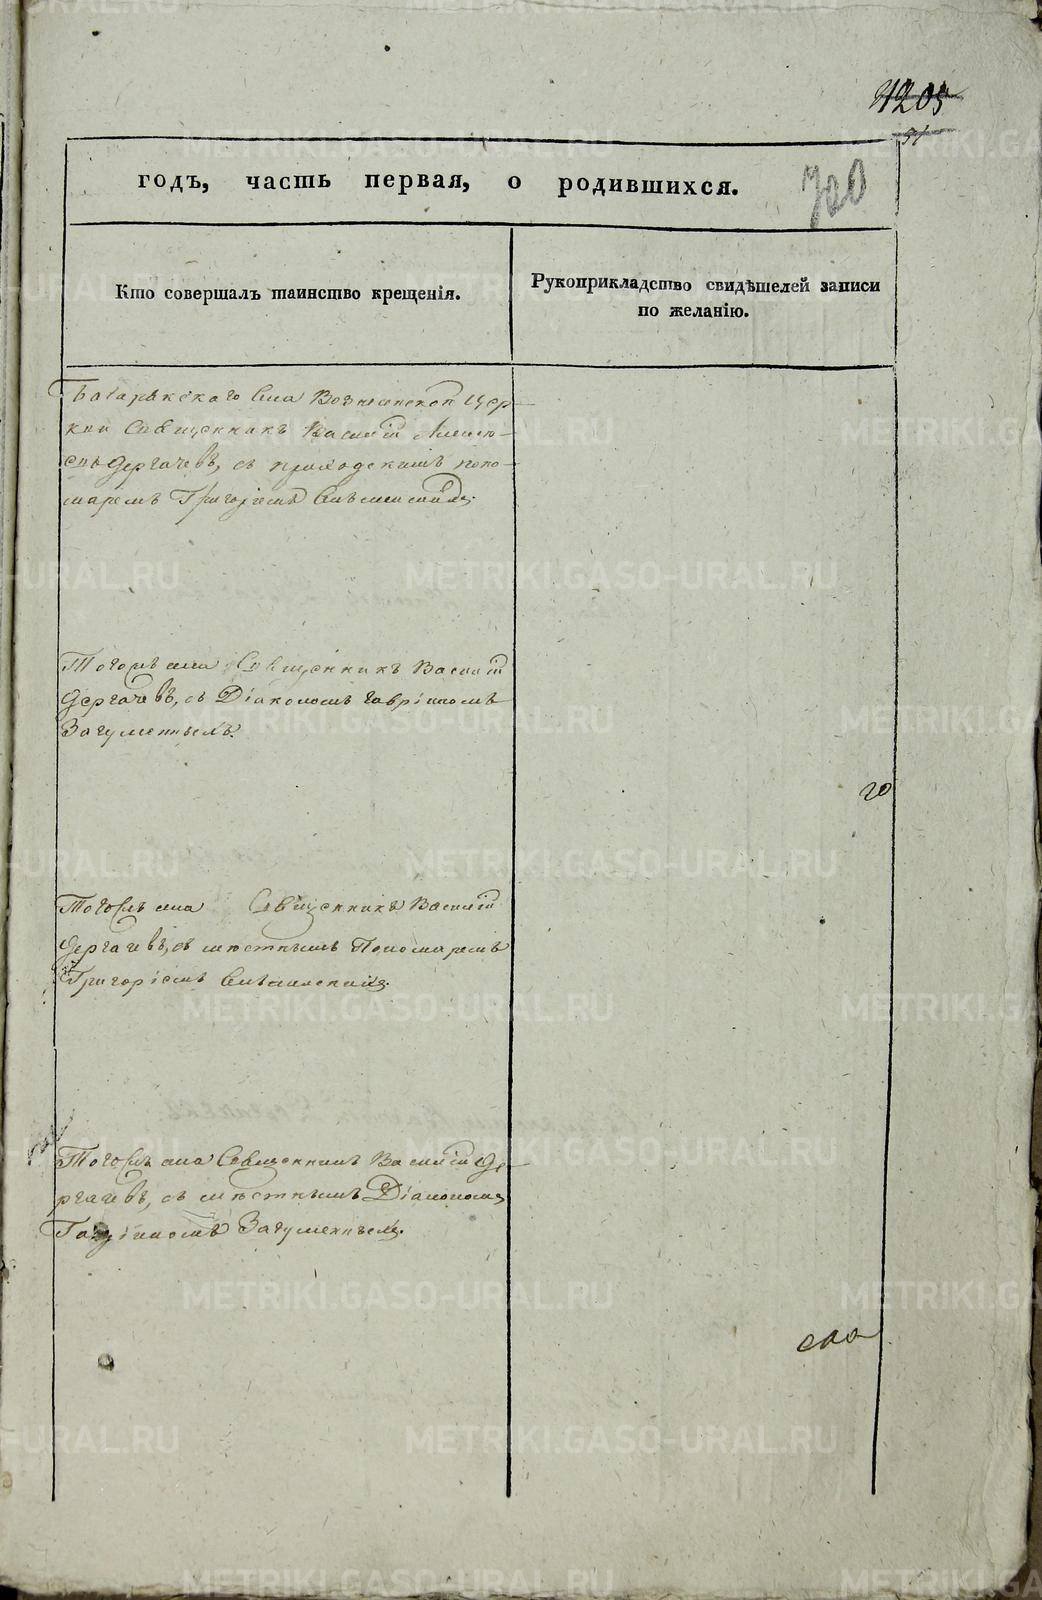 51
годъ, часть первая, о родившихся.
Кто совершалъ таинство крещенія.
Рукоприкладство свидѣтелей записи
по желанію.
села Вознесенской цер-
кви Священникъ Василій
Дергачевъ, съ приходскимъ поно-
маремъ Григоріемъ
Тогожъ села Священникъ Василій
Дергачевъ, съ Діакономъ Гавріиломъ
Загуменнымъ.
го
Тогожъ села Священникъ Василій
Дергачевъ, съ мѣстнымъ Пономаремъ
Григоріемъ
Тогожъ села Священникъ Василій Де-
ргачевъ, съ мѣстнымъ Діакономъ
Гавріиломъ Загуменнымъ.
METRIKI.GASO-URAL.RU